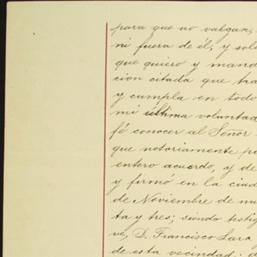 para que no valgan,
ni fuera de él; y sol
que quiero y mand
cion citada que ha
y cumpla en todo
mi última voluntad
fé conocer al Señor
que notoriamente p
entero acuerdo, y de
y firmó en la ciud
de Noviembre de mi
ta y tres; siendo testig
vé, D. Francisco Lara
de esta vecindad: d